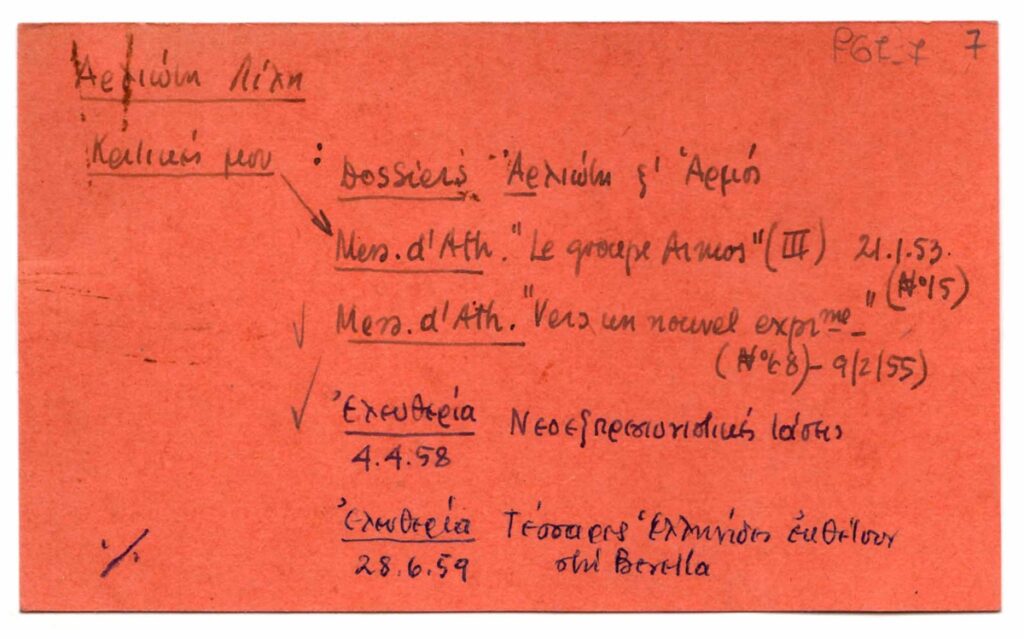 7
Αρλιώτη Λίλη
Κριτικές μου : Dossiers Ἀρλιώτη & Ἁρμός
Mess. d'Ath. "Le groupe Armos" (III) 21.1.53.
(Nº15)
Mess. d'Ath. "Vers un nouvel exprme"
(Nº68) - 9/2/55)
Ἐλευθερία Νεοεξπρεσιονιστικές τάσεις
4.4.58
Ἐλευθερία Τέσσαρες Ἑλληνίδες ἐκθέτουν
28.6.59 στή Βενετία
./.